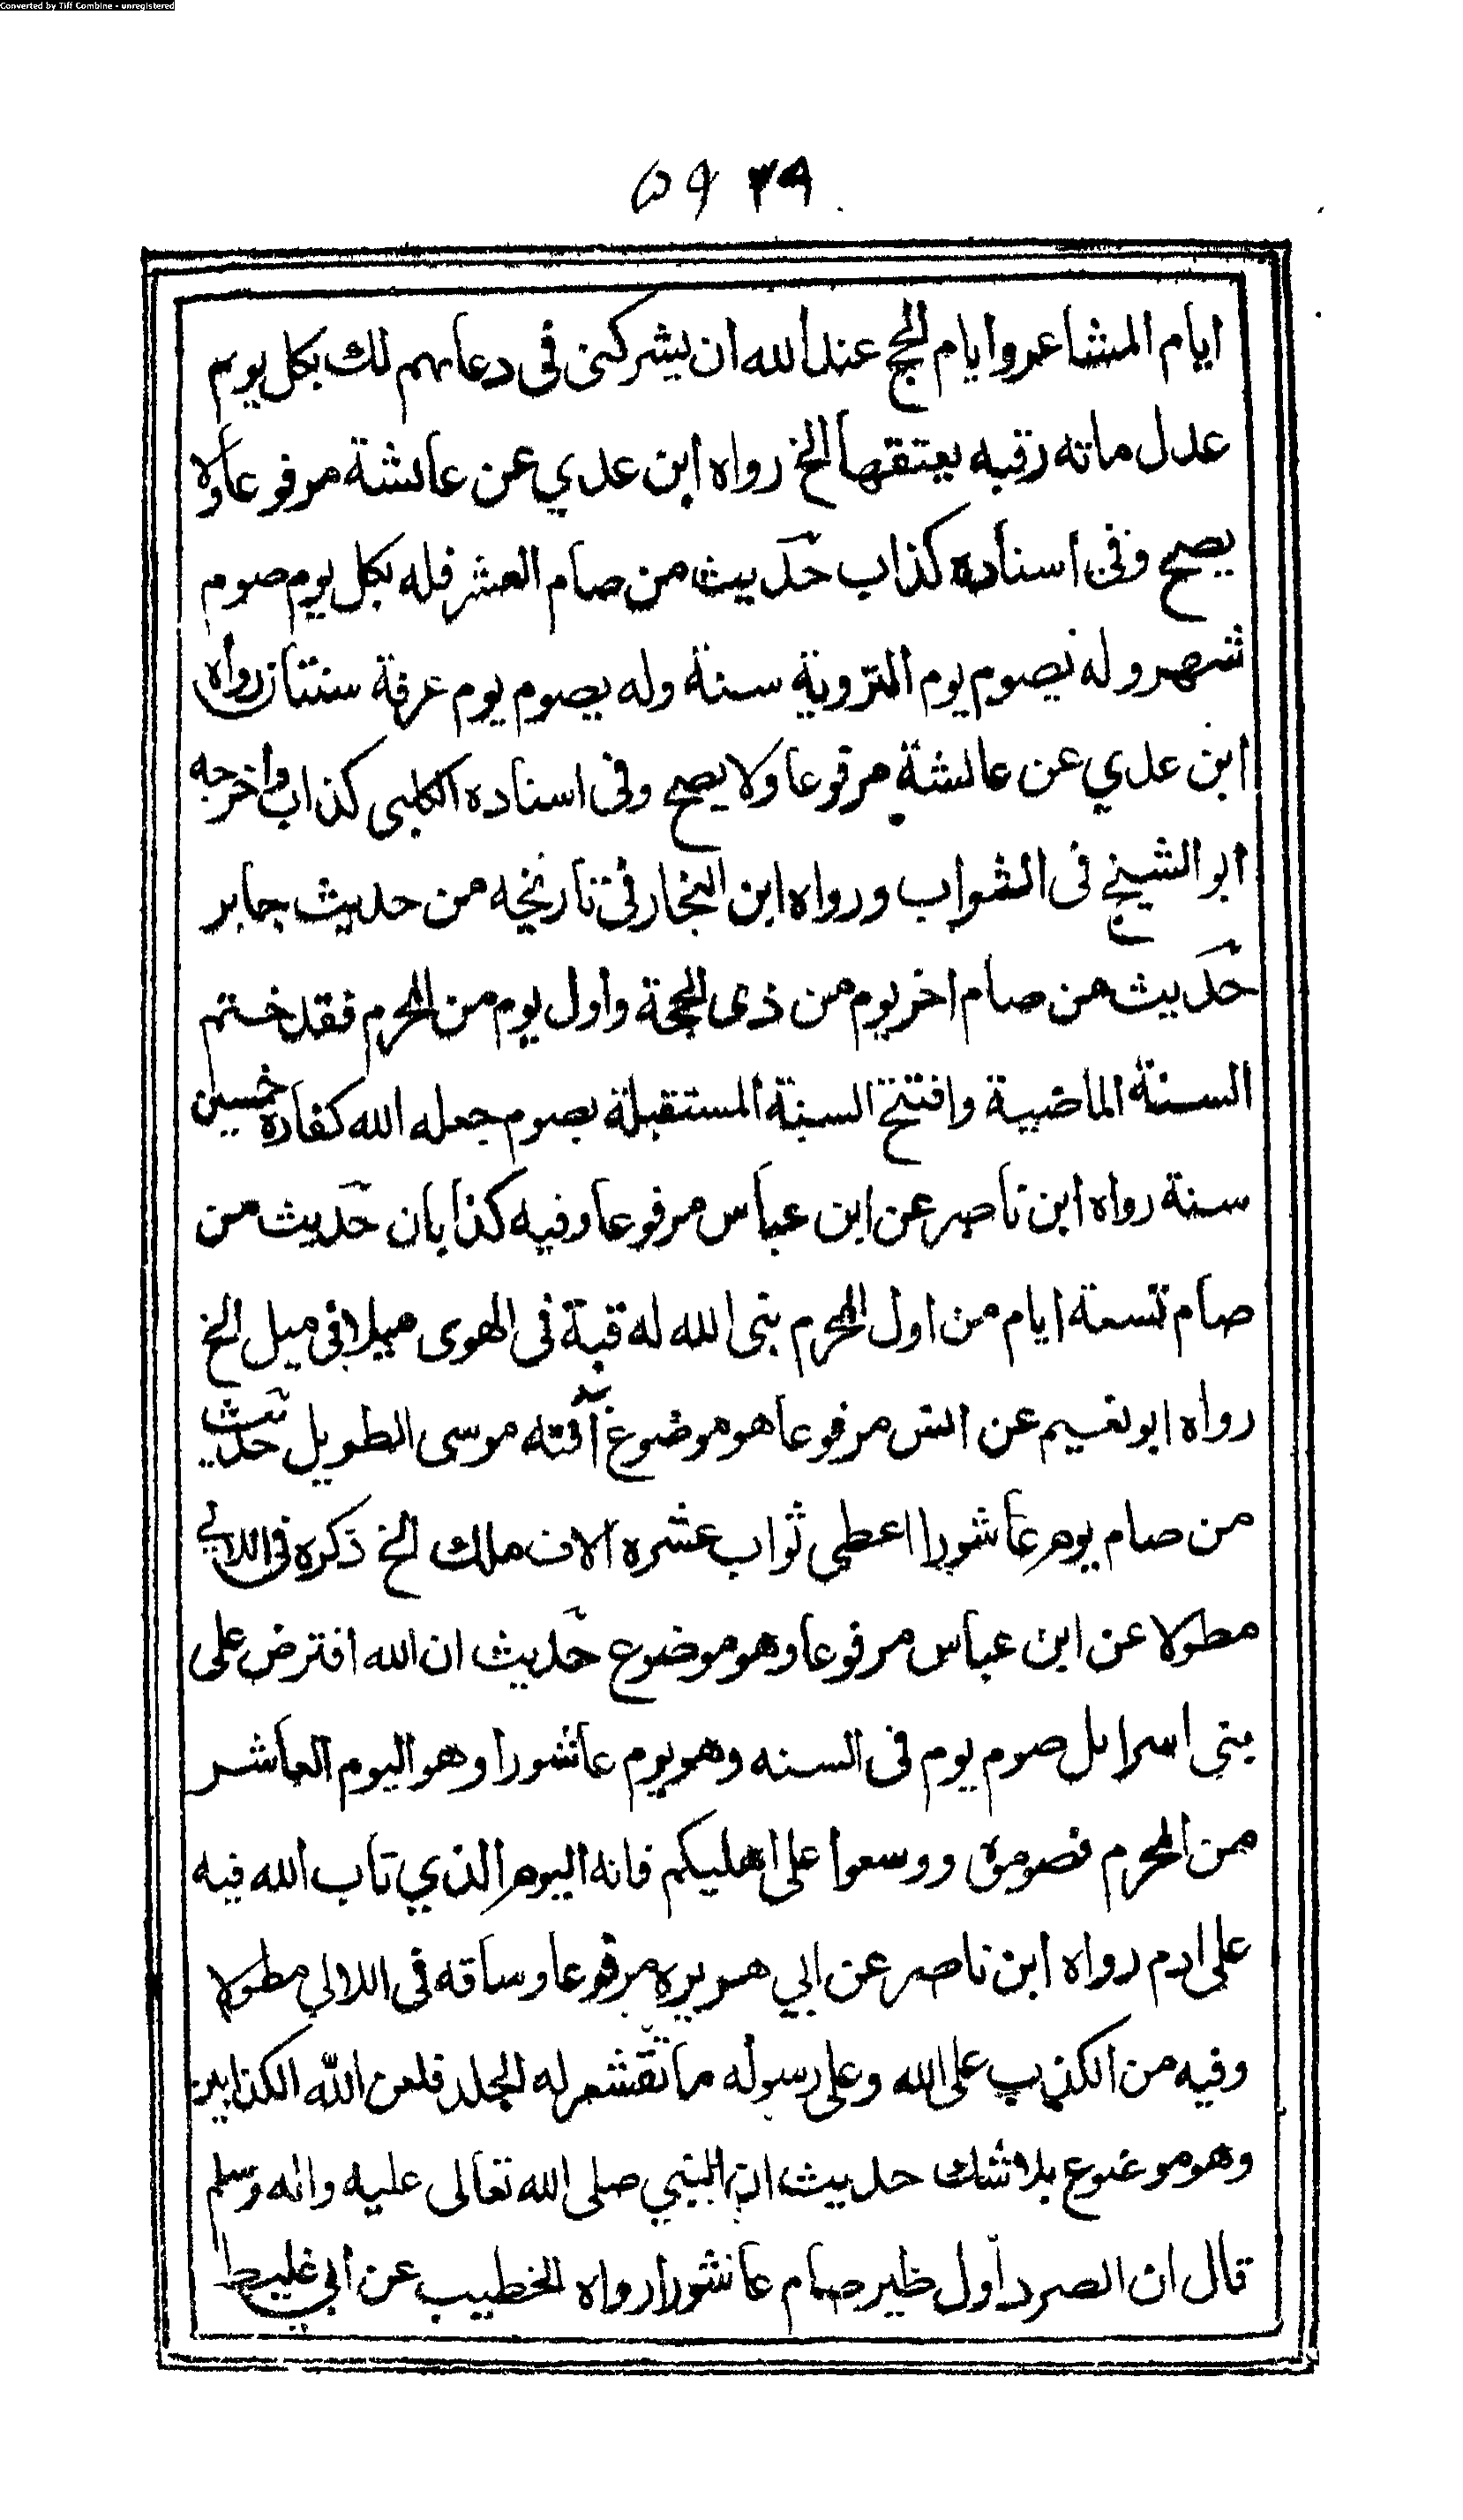 Converted by Tiff Combine - unregistered
٥٩ ٢٩
ايام المشاعر وايام الحج عند الله ان يشركنى فى دعائهم لك بكل يوم
عدل مائه رقبه يعتقها الخ رواه ابن عدي عن عائشة مرفوعا ولا
يصح وفى اسناده كذاب حديث من صام العشر فله بكل يوم صوم
شهر وله بصوم يوم التروية سنة وله بصوم يوم عرفة سنتان رواه
ابن عدي عن عائشة مرفوعا ولا يصح وفى اسناده الكلبى كذاب واخرجه
ابو الشيخ فى الثواب ورواه ابن النجار فى تاريخه من حديث جابر
حديث من صام اخر يوم من ذى الحجة واول يوم من المحرم فقد ختم
السنة الماضية وافتتح السنة المستقبلة بصوم جعله الله كفارة خمسين
سنة رواه ابن ناصر عن ابن عباس مرفوعا وفيه كذابان حديث من
صام تسعة ايام من اول المحرم بنى الله له قبة فى الهوى ميلا فى ميل الخ
رواه ابو نعيم عن انس مرفوعا هو موضوع آفته موسى الطويل حديث
من صام يوم عاشورا اعطى ثواب عشرة الاف ملك الخ ذكره فى اللالي
مطولا عن ابن عباس مرفوعا وهو موضوع حديث ان الله افترض على
بنى اسرايل صوم يوم فى السنه وهو يوم عاشورا وهو اليوم العاشر
من المحرم فصوموه ووسعوا على اهليكم فانه اليوم الذي تاب الله فيه
على ادم رواه ابن ناصر عن ابي هريره مرفوعا وساقه فى اللالي مطولا
وفيه من الكذب على الله وعلى رسوله ما تقشعر له الجلد فلعن الله الكذابين
وهو موضوع بلا شك حديث ان النبي صلى الله تعالى عليه واله وسلم
قال ان الصرد اول طير صام عاشورا رواه الخطيب عن ابي غليظ